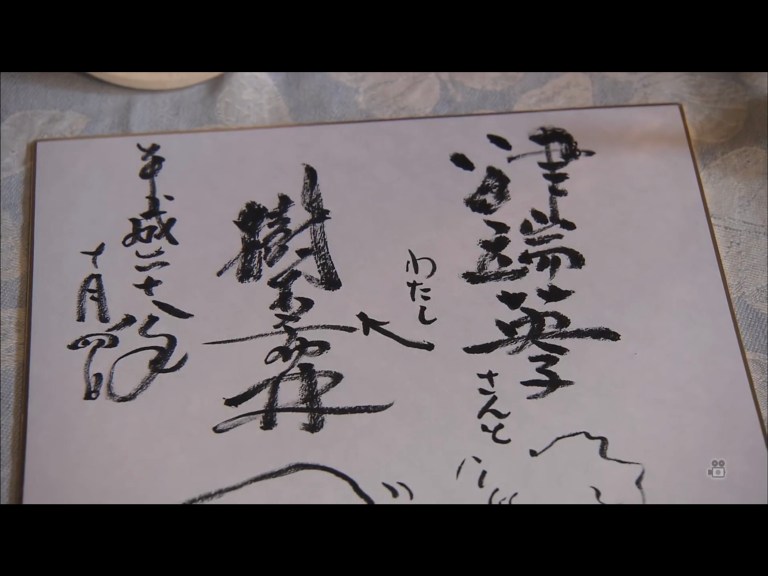 津端英子さんと
わたし
樹木希林
平成二十八年
十月四日